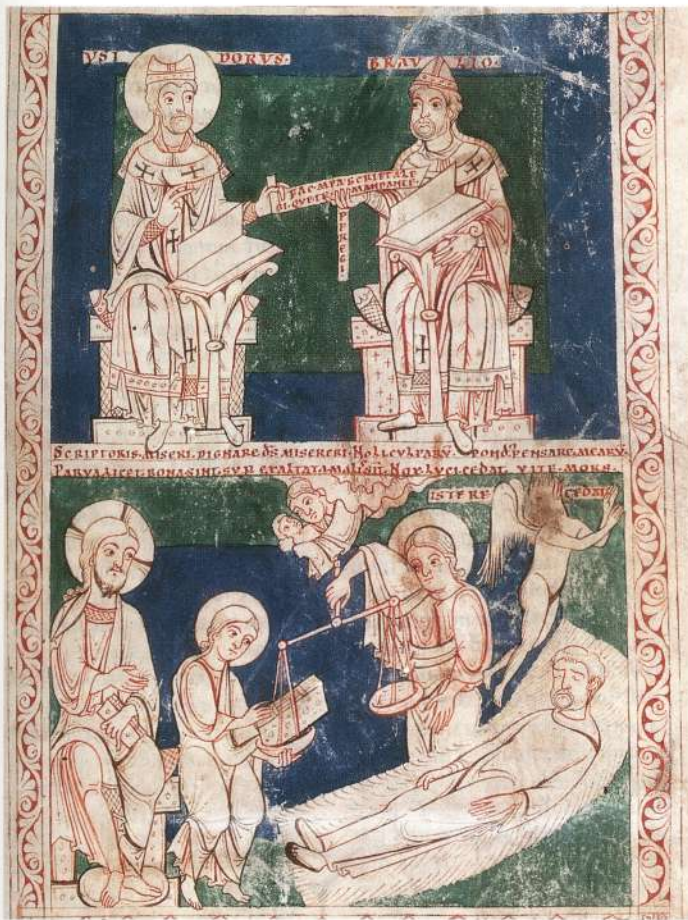 YSI DORVS·
BRAV LIO·
FAC·MEA SCRIPTA LE
GI·QVE TE MANDANTE·
PEREGI·
SCRIPTORIS·MISERI·DIGNARE D̄S MISERERI·NOLI CVLPARV̄· PONDꝰ PENSARE MEARV̄
PARVA LICET BONA SINT·SVP EXALTATA·MALIS SINT·NOX LVCI CEDAT· VITE MORS·
ISTE RE CEDAT